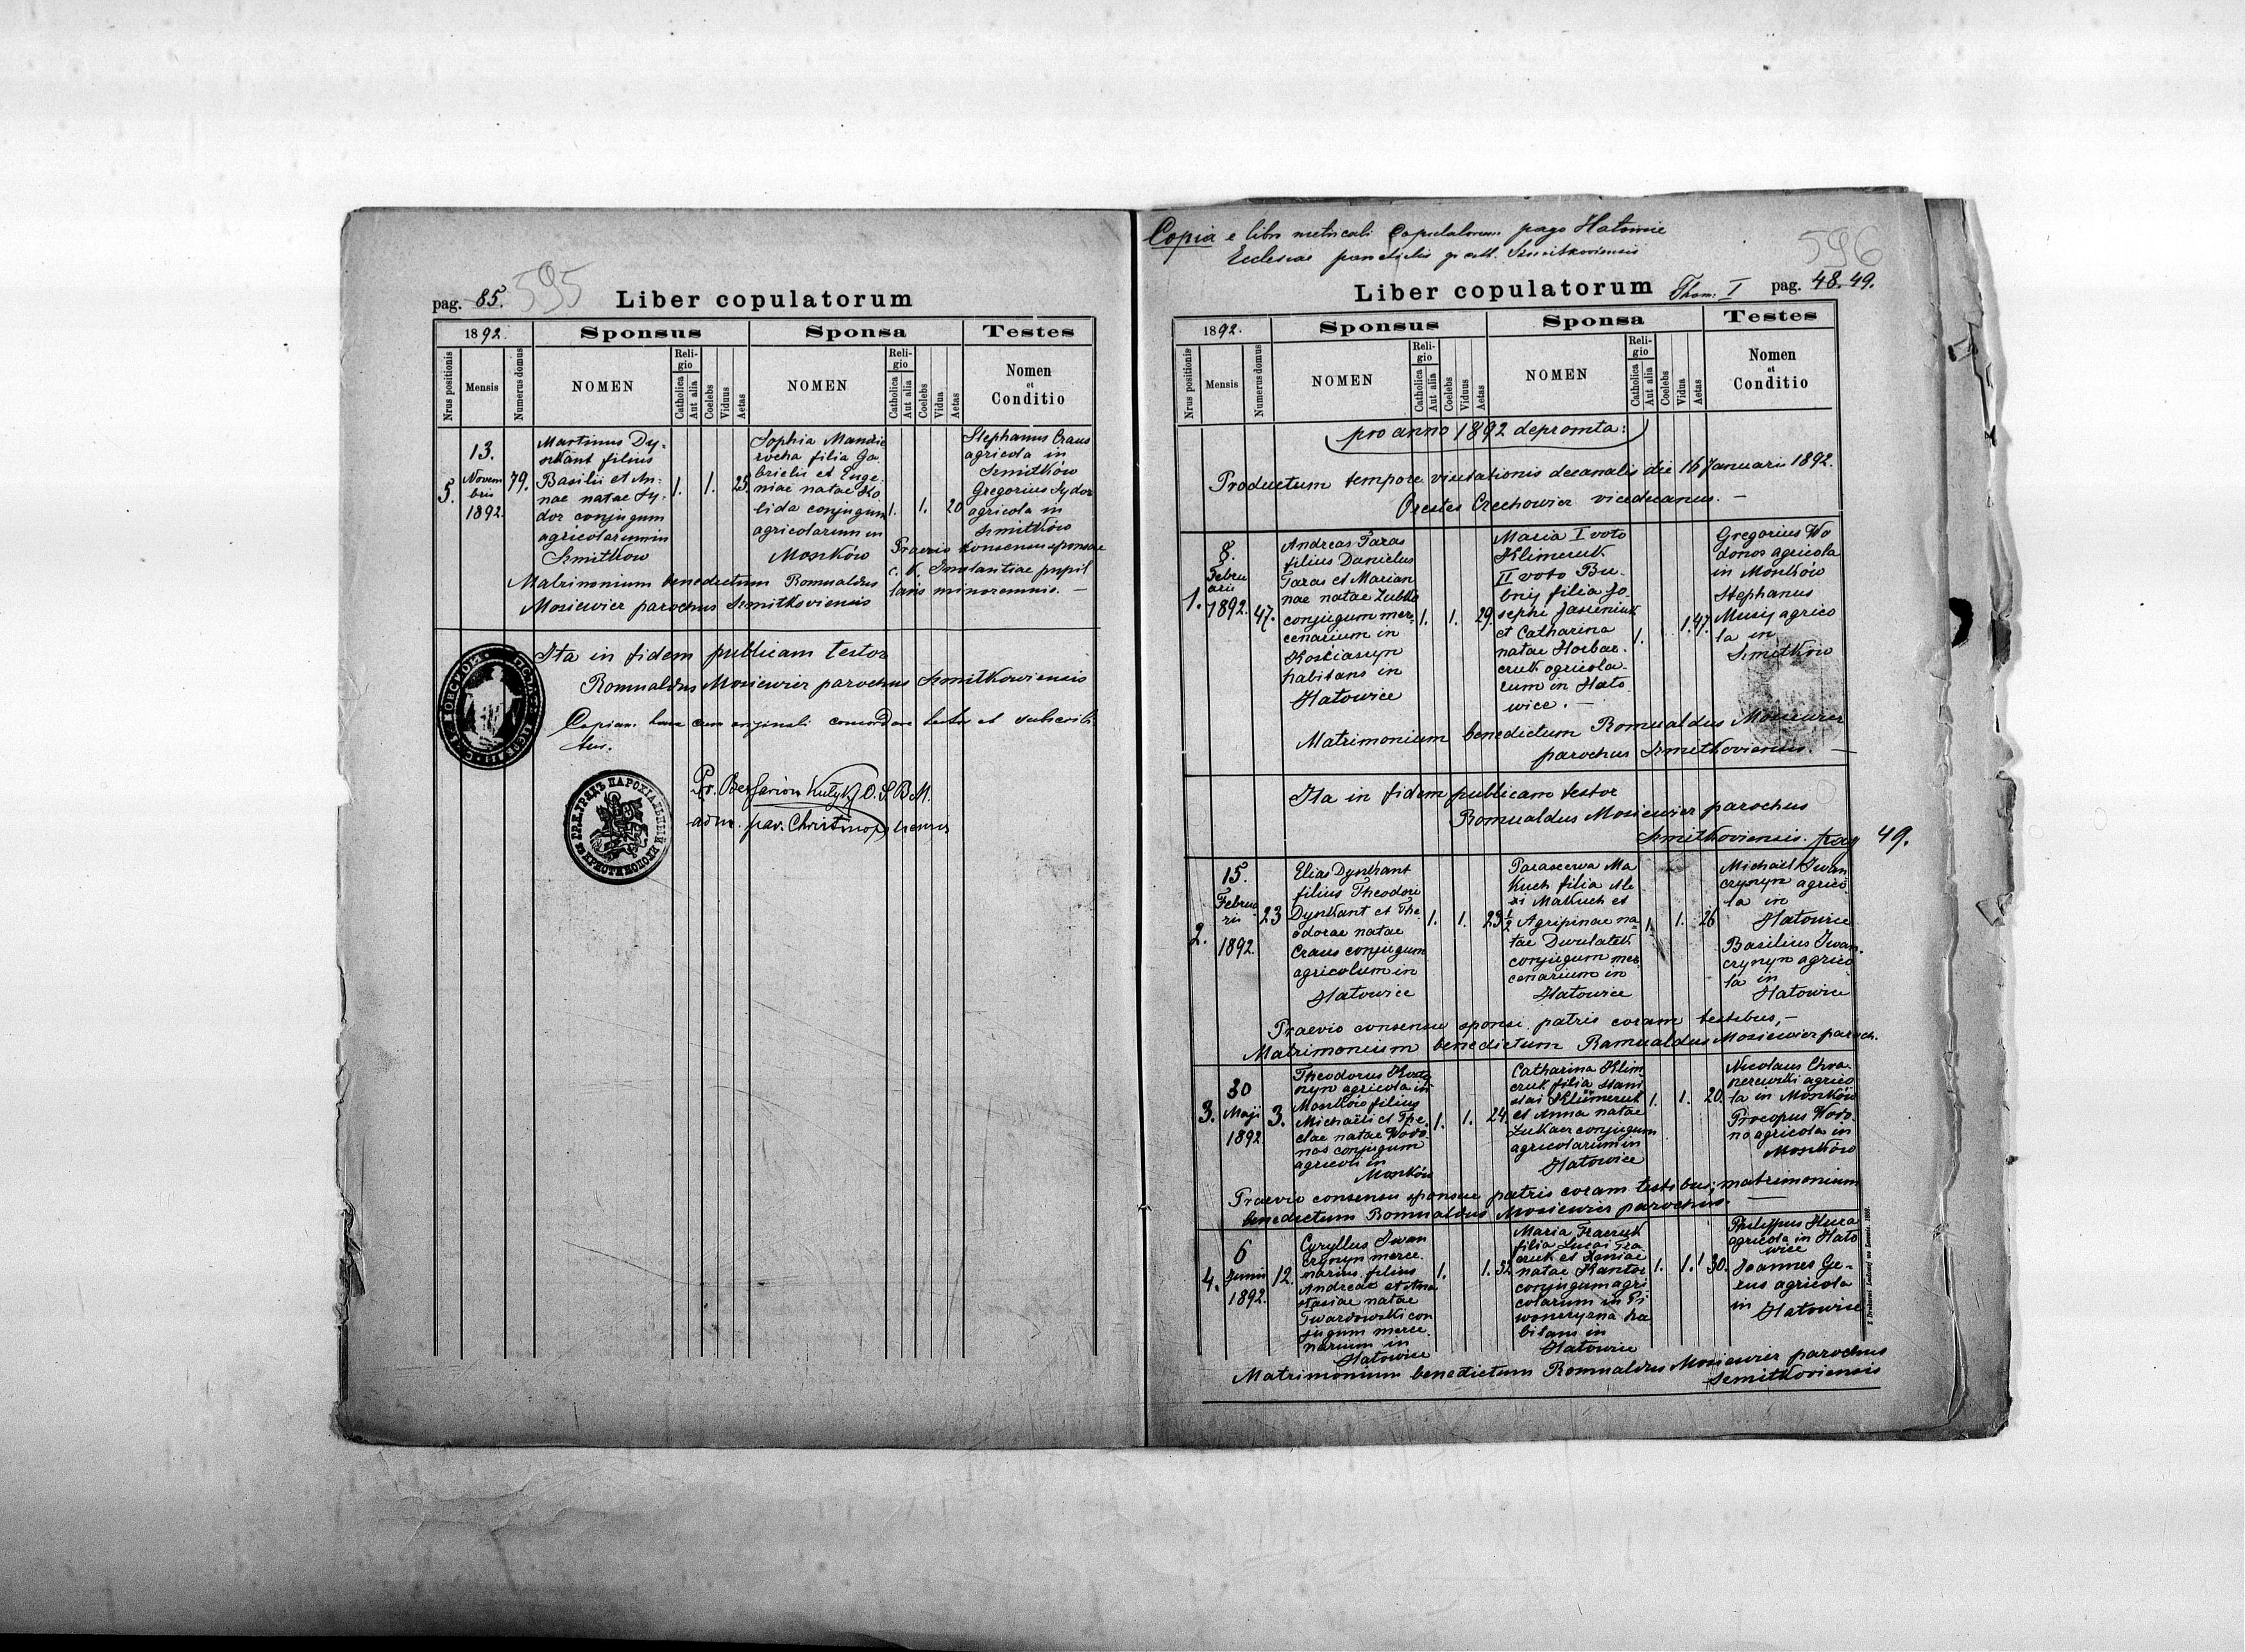 595
pag. 85.
Liber copulatorum
1892.
Sponsus
Sponsa
Testes
Nrus positionis
Mensis
Numerus domus
NOMEN
Religio
Catholica
Aut alia
Coelebs
Viduus
Aetas
NOMEN
Religio
Catholica
Aut alia
Coelebs
Vidua
Aetas
Nomen
et
Conditio
5.
13.
Novem
bris
1892.
79.
Martinus Dy-
nkant filius
Basilii et An-
nae natae Sy-
dor conjugum
agricolarum in
Szmitkow
1.
1.
25
Sophia Mandz
rocha filia Ga
brielis et Euge
niae natae Ko
lida conjugum
agricolarum in
Moszków
1.
1.
20
Stephanus Craus
agricola in
Szmitków
Gregorius Sydor
agricola in
Szmitków
Praevio konsensu sponsae
c. k. Instantiae pupil
laris minorennis. —
Matrimonium benedictum Romualdus
Mosiewicz parochus Szmitkoviensis
Ita in fidem publicam testor
Romualdus Mosiewicz parochus Szmitkowiensis
Copiam hanc cum originali concordare testor et subscrib
tus.
Pr. Bessarion Kulyk O.S.B.M.
adm. par. Christinopoliensis
Copia e libro metricali Copulatorum pago Hatowice
Ecclesiae parochialis gr. cath. Szmitkoviensis
596
Liber copulatorum Thom. I pag. 48. 49.
1892.
Sponsus
Sponsa
Testes
Nrus positionis
Mensis
Numerus domus
NOMEN
Religio
Catholica
Aut alia
Coelebs
Viduus
Aetas
NOMEN
Religio
Catholica
Aut alia
Coelebs
Vidua
Aetas
Nomen
et
Conditio
pro anno 1892 depromta:
Productum tempore visitationis decanalis die 16 Januarii 1892.
Orestes Czechowicz vicedecanus. —
1.
8.
Febru
arii
1892.
47.
Andreas Taras
filius Danielus
Taras et Marian
nae natae Zubko
conjugum mer-
cenarium in
Kościaszyn
habitans in
Hatowice
1.
1.
29
Maria I voto
Klimeruk
II voto Bu-
bnij filia Jo-
sephi Jasieniuk
et Catharina
natae Horbac-
cruk agricola-
rum in Hato
wice. —
1.
1.
47.
Gregorius Wo
donos agricola
in Moszków
Stephanus
Musij agrico
la in
Szmitków
Matrimonium benedictum Romualdus Mosiewicz
parochus Szmitkoviensis. —
Ita in fidem publicam testor
Romualdus Mosiewicz parochus
Szmitkoviensis. pag 49.
2.
15.
Februa
rii
1892.
23
Elias Dynkant
filius Theodori
Dynkant et The
odorae natae
Craus conjugum
agricolum in
Hatowice
1.
1.
23½
Parascewa Ma
kuch filia Ale
xi Makuch et
Agripinae na
tae Dwulatek
conjugum mer
cenarium in
Hatowice
1.
1.
26
Michael Iwan
czynyn agrico
la in
Hatowice
Basilius Iwan-
czynyn agrico
la in
Hatowice
Praevio consensu sponsi patris coram testibus, —
Matrimonium benedictum Romualdus Mosiewicz paroch.
3.
30
Maji
1892
3.
Theodorus Kosto
nyn agricola in
Moszków filius
Michaeli et The
clae natae Wodo
nos conjugum
agricoli in
Moszków
1.
1.
24
Catharina Klim
cruk filia Stani
slai Klimeruk
et Anna natae
Lukacz conjugum
agricolarum in
Hatowice
1.
1.
20.
Nicolaus Chra
nerewski agrico
la in Moszków
Procopus Wodo
no agricola in
Moszków
Praevio consensu sponsae patris coram testibus; matrimonium
benedictum Romualdus Mosiewicz parochus.
4.
6
Junii
1892.
12.
Cyryllus Iwan
czynyn merce
narius filius
Andreae et Ana
stasiae natae
Twardowski con
jugum merce
narium in
Hatowice
1.
1.
32
Maria Tkaczuk
filia Lucai Tka
czuk et Xeniae
natae Kantor
conjugum agri
colarum in Pi
woneryzna ha
bitans in
Hatowice
1.
1.
30.
Philippus Hura
agricola in Hato
wice
Joannes Ge-
rus agricola
in Hatowice
Matrimonium benedictum Romualdus Mosiewicz parochus
Szmitkoviensis